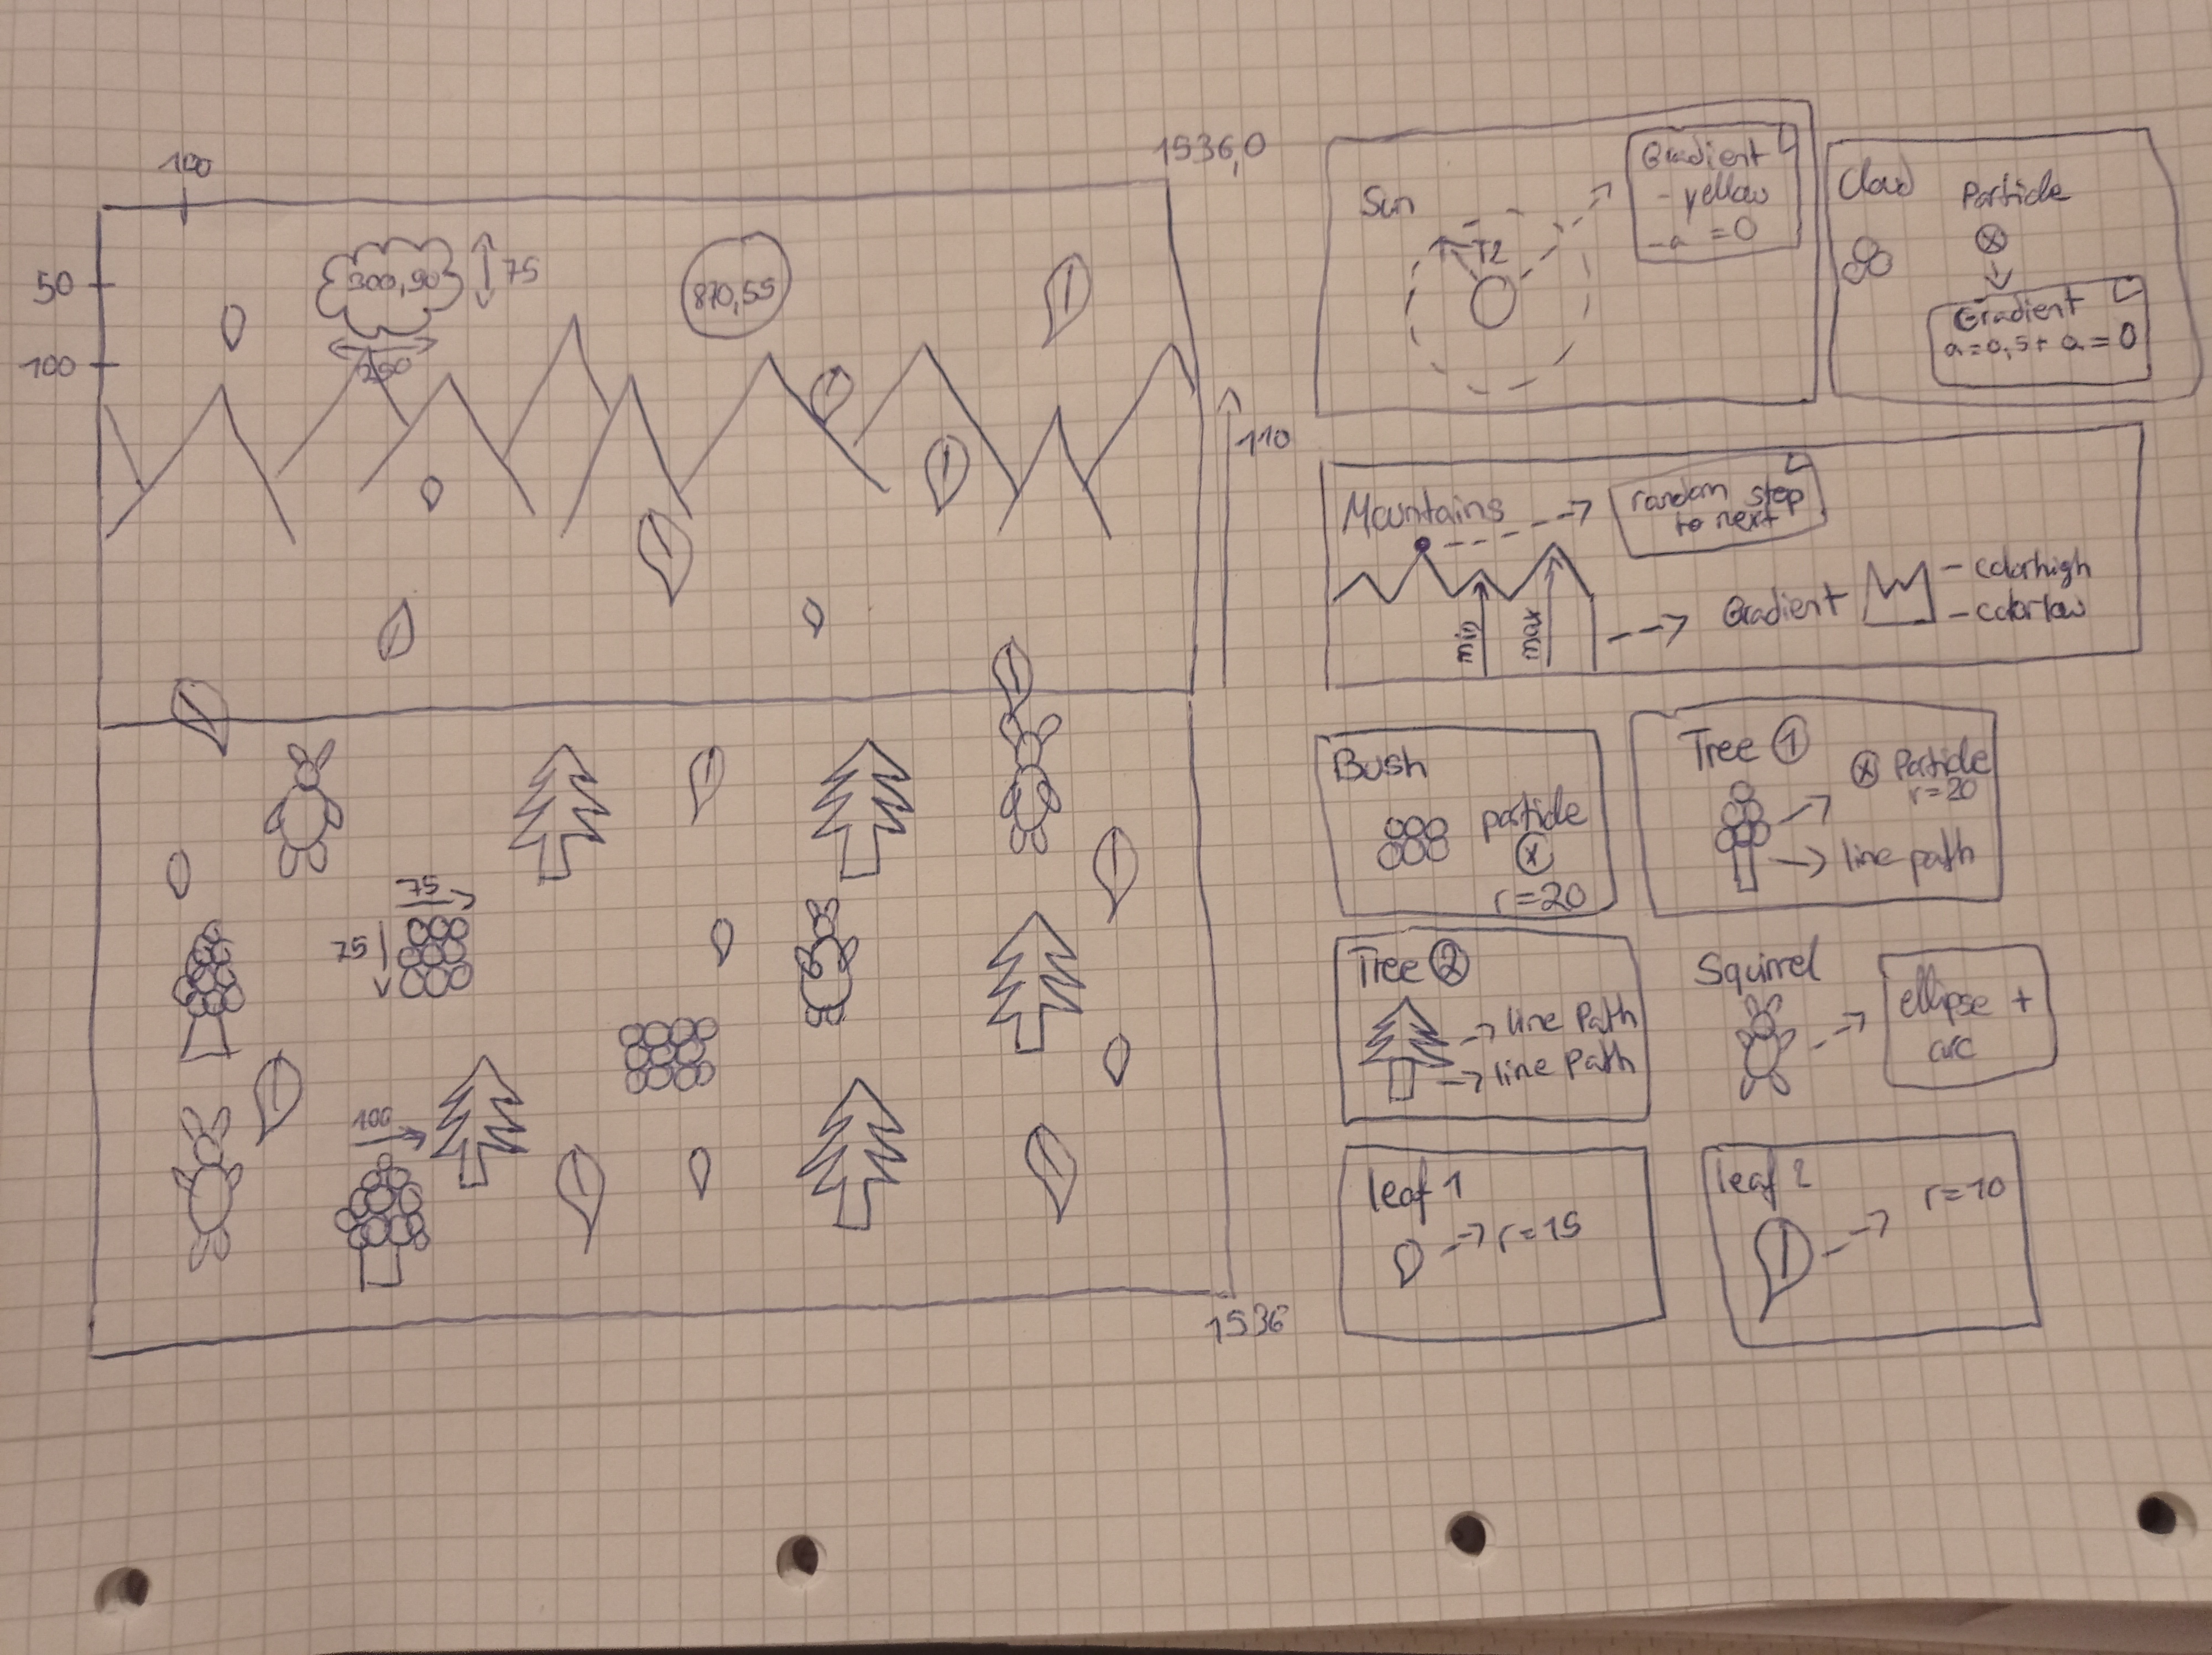 100
1536,0
50
100
300,90
75
250
870,55
110
75
75
100
1536
Sun
r2
Gradient
- yellow
- a = 0
Cloud
Particle
Gradient
a=0,5+ a=0
Mountains
random step
to next
min
max
Gradient
- colorhigh
- colorlow
Bush
particle
r=20
Tree 1
Particle
r=20
line path
Tree 2
line Path
line Path
Squirrel
ellipse +
arc
leaf 1
r=15
leaf 2
r=10